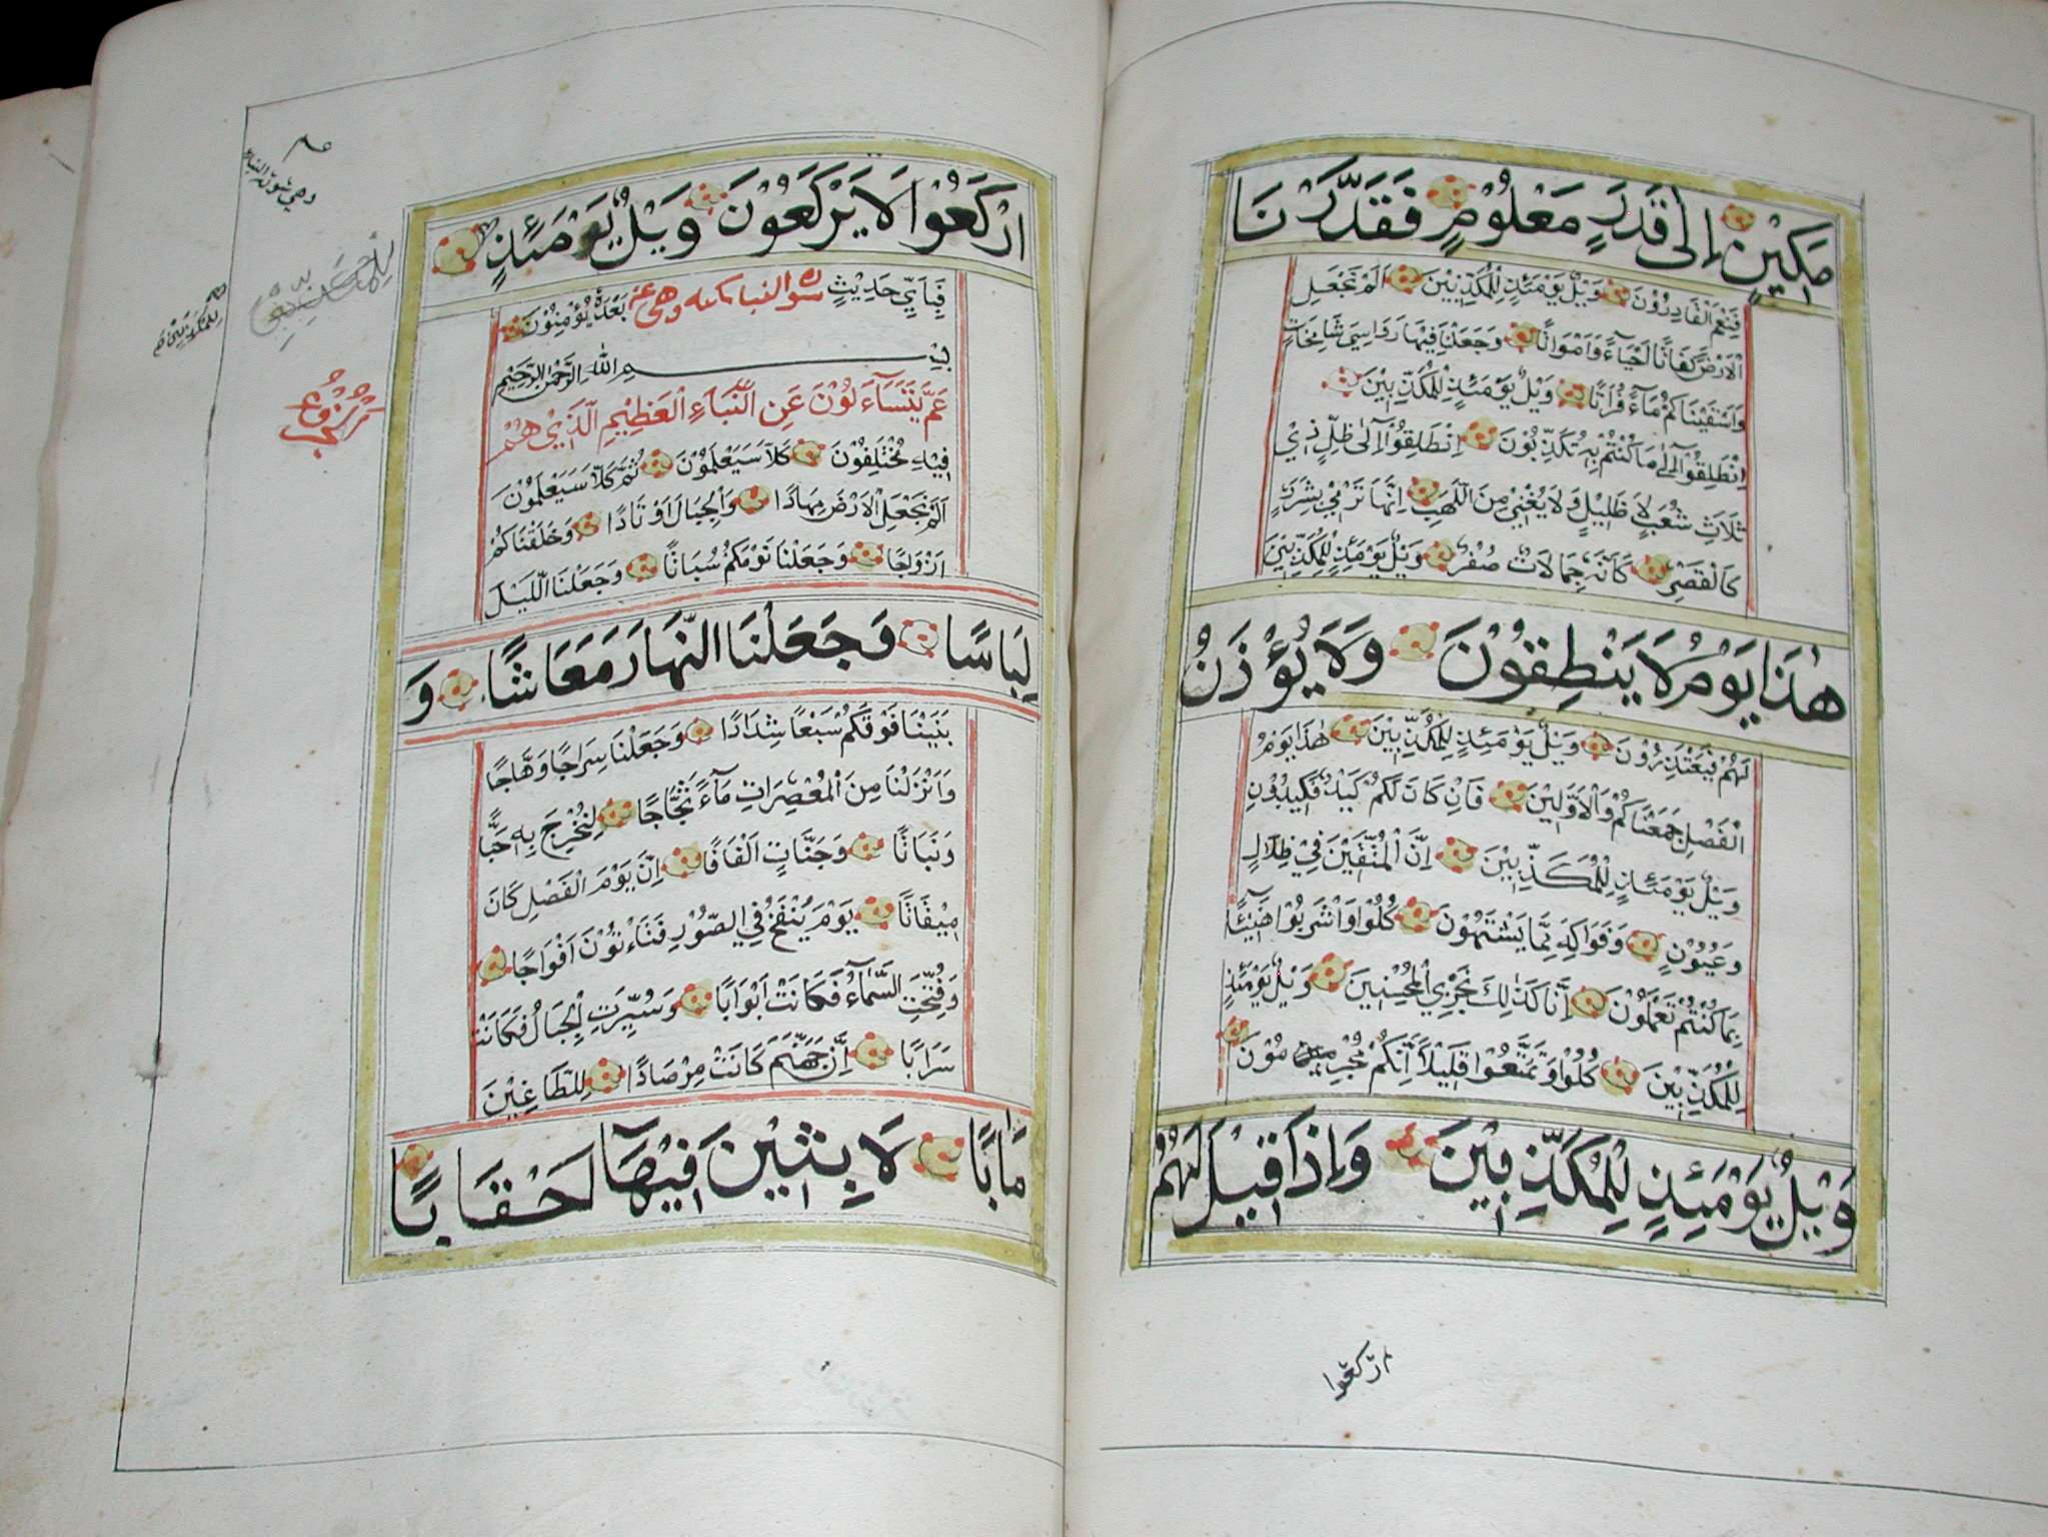 مَكِيْنٍ اِلٰى قَدَرٍ مَعْلُوْمٍ فَقَدَّرْنَا
فَنِعْمَ الْقَادِرُوْنَ وَيْلٌ يَوْمَئِذٍ لِلْمُكَذِّبِيْنَ اَلَمْ نَجْعَلِ
الْاَرْضَ كِفَاتًا اَحْيَآءً وَاَمْوَاتًا وَجَعَلْنَا فِيْهَا رَوَاسِيَ شَامِخَاتٍ
وَاَسْقَيْنَاكُمْ مَآءً فُرَاتًا وَيْلٌ يَوْمَئِذٍ لِلْمُكَذِّبِيْنَ
اِنْطَلِقُوْٓا اِلٰى مَا كُنْتُمْ بِهٖ تُكَذِّبُوْنَ اِنْطَلِقُوْٓا اِلٰى ظِلٍّ ذِيْ
ثَلَاثِ شُعَبٍ لَا ظَلِيْلٍ وَلَا يُغْنِيْ مِنَ اللَّهَبِ اِنَّهَا تَرْمِيْ بِشَرَرٍ
كَالْقَصْرِ كَاَنَّهٗ جِمَالَاتٌ صُفْرٌ وَيْلٌ يَوْمَئِذٍ لِلْمُكَذِّبِيْنَ
هٰذَا يَوْمُ لَا يَنْطِقُوْنَ وَلَا يُؤْذَنُ
لَهُمْ فَيَعْتَذِرُوْنَ وَيْلٌ يَوْمَئِذٍ لِلْمُكَذِّبِيْنَ هٰذَا يَوْمُ
الْفَصْلِ جَمَعْنَاكُمْ وَالْاَوَّلِيْنَ فَاِنْ كَانَ لَكُمْ كَيْدٌ فَكِيْدُوْنِ
وَيْلٌ يَوْمَئِذٍ لِلْمُكَذِّبِيْنَ اِنَّ الْمُتَّقِيْنَ فِيْ ظِلَالٍ
وَعُيُوْنٍ وَفَوَاكِهَ مِمَّا يَشْتَهُوْنَ كُلُوْا وَاشْرَبُوْا هَنِيْٓئًا
بِمَا كُنْتُمْ تَعْمَلُوْنَ اِنَّا كَذٰلِكَ نَجْزِي الْمُحْسِنِيْنَ وَيْلٌ يَوْمَئِذٍ
لِلْمُكَذِّبِيْنَ كُلُوْا وَتَمَتَّعُوْا قَلِيْلًا اِنَّكُمْ مُجْرِمُوْنَ
وَيْلٌ يَوْمَئِذٍ لِلْمُكَذِّبِيْنَ وَاِذَا قِيْلَ لَهُمُ
ارْكَعُوا
ارْكَعُوْا لَا يَرْكَعُوْنَ وَيْلٌ يَوْمَئِذٍ
لِلْمُكَذِّبِيْنَ
فَبِاَيِّ حَدِيْثٍ بَعْدَهٗ يُؤْمِنُوْنَ
سورة النبا مكية وهى
بِسْمِ اللّٰهِ الرَّحْمٰنِ الرَّحِيْمِ
عَمَّ يَتَسَآءَلُوْنَ عَنِ النَّبَاءِ الْعَظِيْمِ الَّذِيْ هُمْ
فِيْهِ مُخْتَلِفُوْنَ كَلَّا سَيَعْلَمُوْنَ ثُمَّ كَلَّا سَيَعْلَمُوْنَ
اَلَمْ نَجْعَلِ الْاَرْضَ مِهَادًا وَالْجِبَالَ اَوْتَادًا وَخَلَقْنَاكُمْ
اَزْوَاجًا وَجَعَلْنَا نَوْمَكُمْ سُبَاتًا وَجَعَلْنَا اللَّيْلَ
لِبَاسًا وَجَعَلْنَا النَّهَارَ مَعَاشًا وَ
بَنَيْنَا فَوْقَكُمْ سَبْعًا شِدَادًا وَجَعَلْنَا سِرَاجًا وَهَّاجًا
وَاَنْزَلْنَا مِنَ الْمُعْصِرَاتِ مَآءً ثَجَّاجًا لِنُخْرِجَ بِهٖ حَبًّا
وَنَبَاتًا وَجَنَّاتٍ اَلْفَافًا اِنَّ يَوْمَ الْفَصْلِ كَانَ
مِيْقَاتًا يَوْمَ يُنْفَخُ فِي الصُّوْرِ فَتَاْتُوْنَ اَفْوَاجًا
وَفُتِحَتِ السَّمَآءُ فَكَانَتْ اَبْوَابًا وَسُيِّرَتِ الْجِبَالُ فَكَانَتْ
سَرَابًا اِنَّ جَهَنَّمَ كَانَتْ مِرْصَادًا لِلطَّاغِيْنَ
مَاٰبًا لَابِثِيْنَ فِيْهَآ اَحْقَابًا